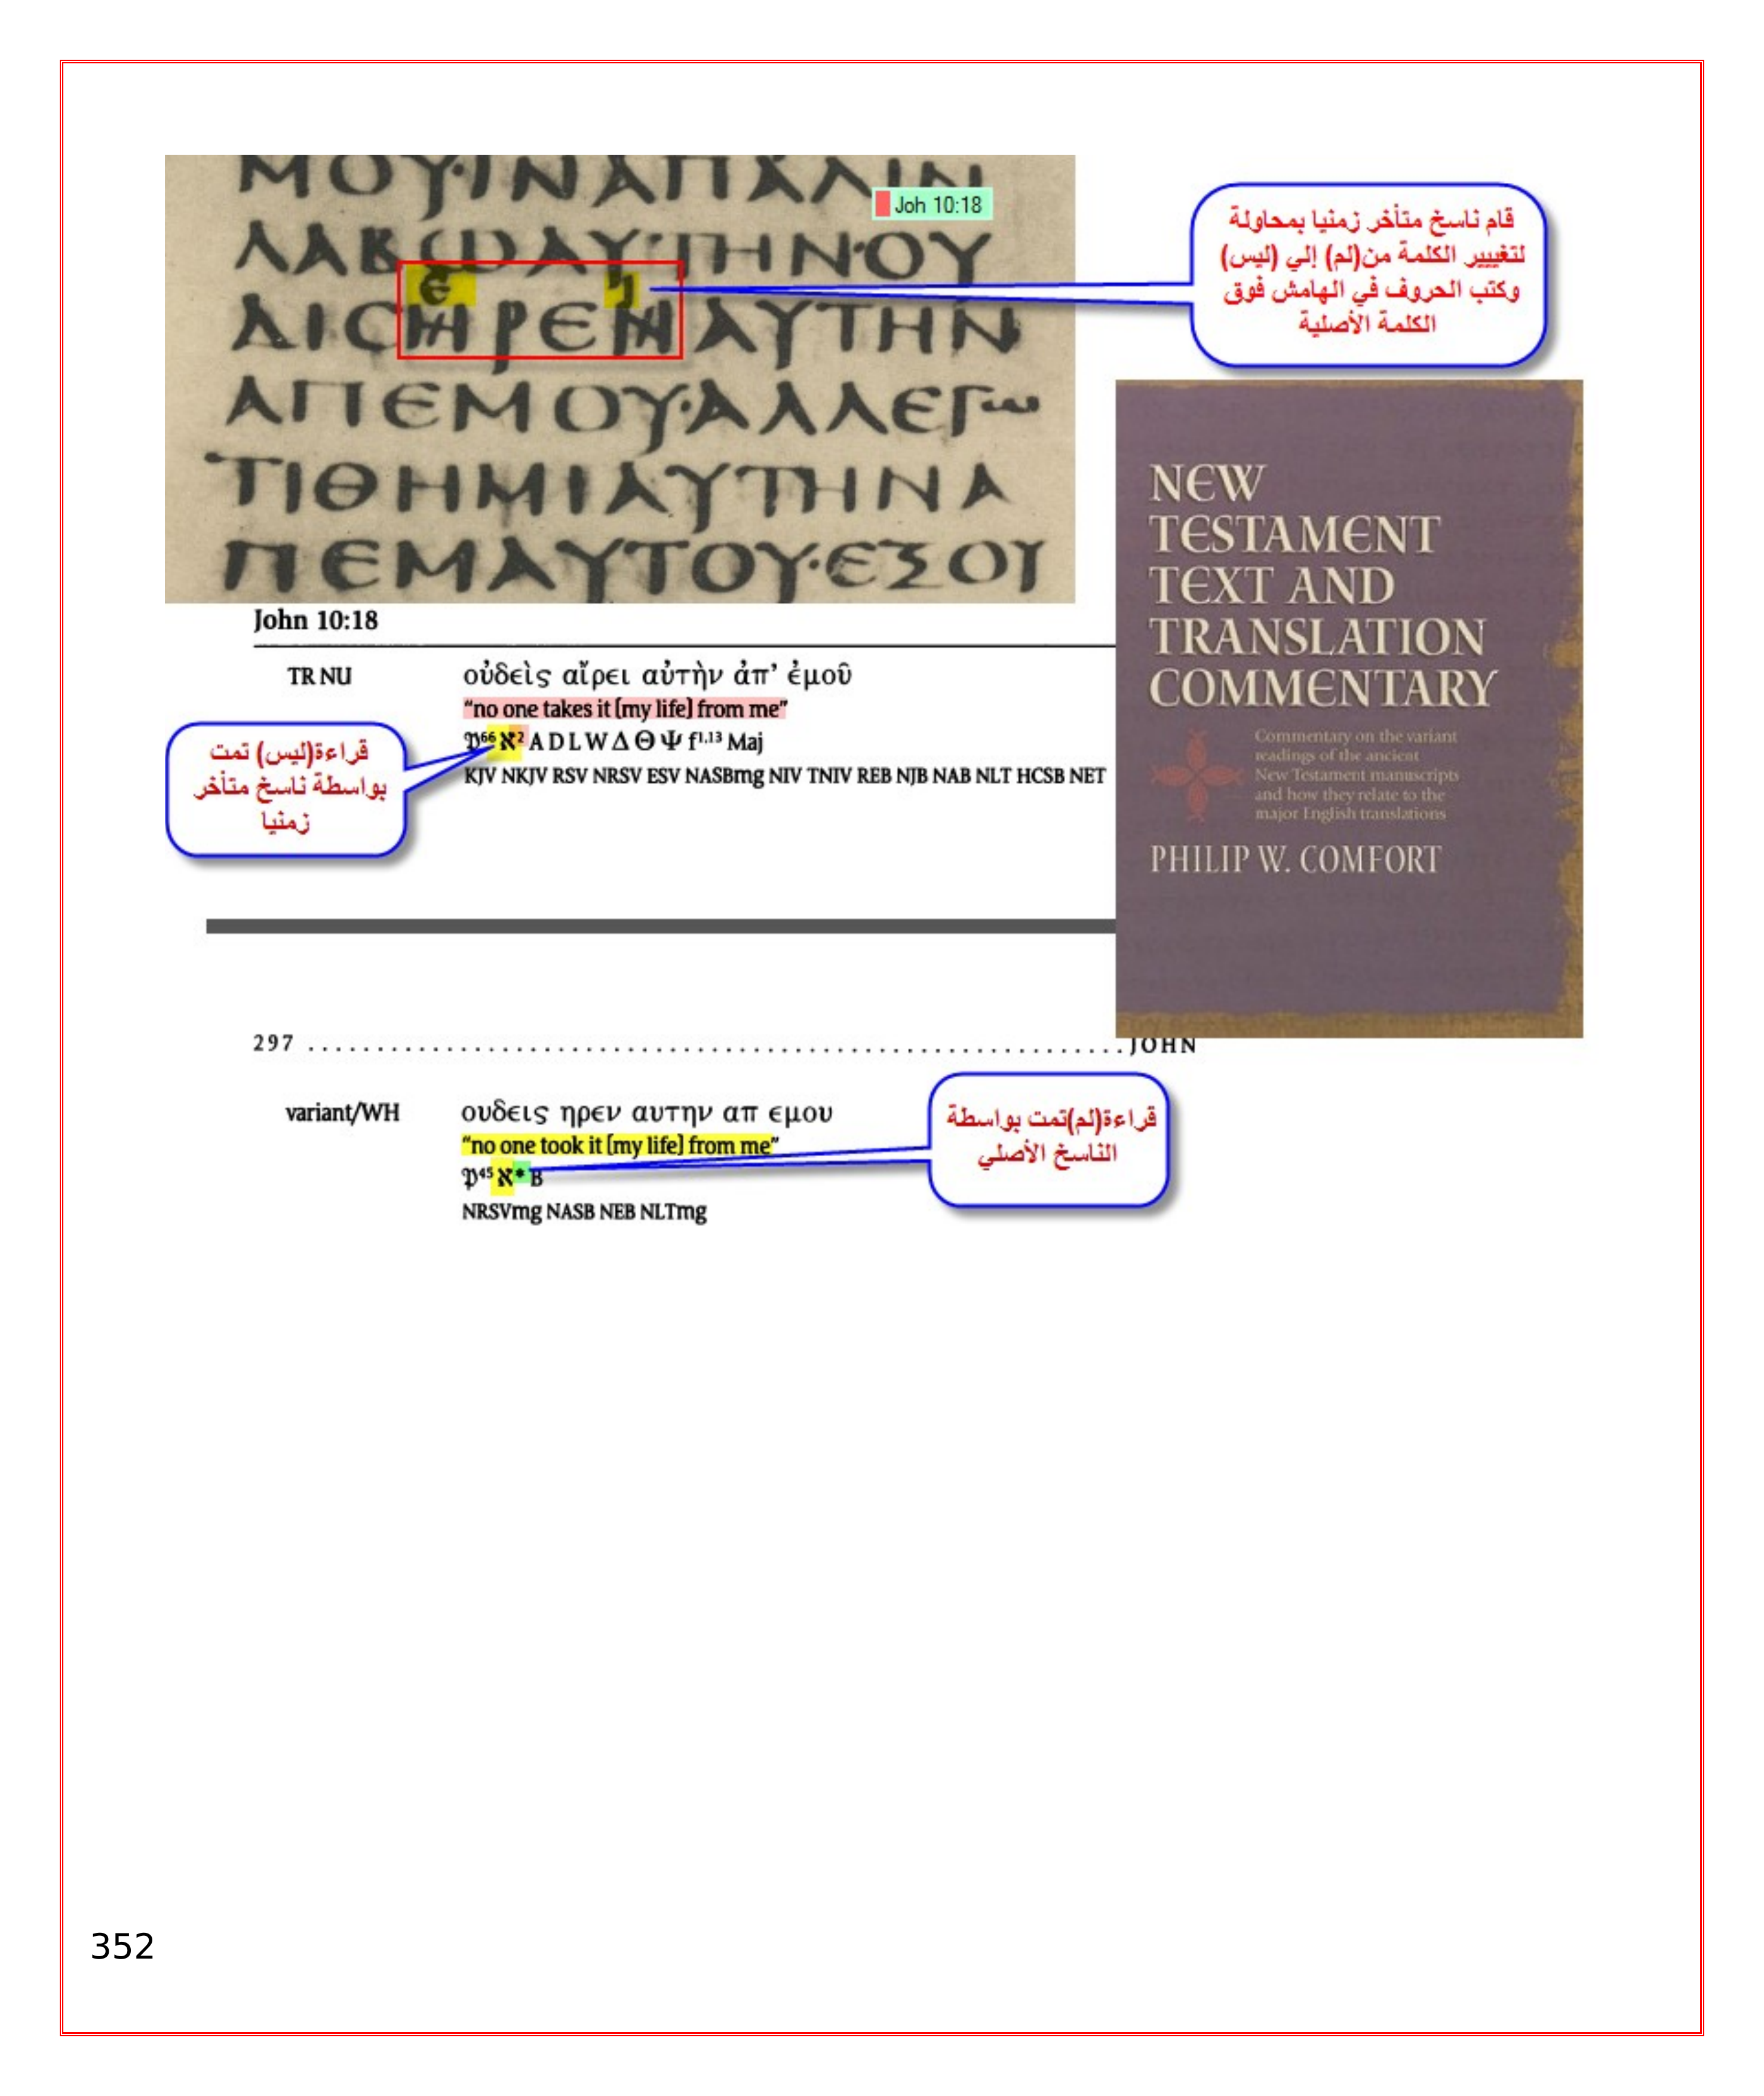 ΜΟΥ·ΙΝΑΠΑΛΙΝ
Joh 10:18
ΛΑΒΩΑΥΤΗΝ·ΟΥ
ΔΙCΗΡΕΝΑΥΤΗΝ
ΑΠΕΜΟΥ·ΑΛΛΕΓω
ΤΙΘΗΜΙΑΥΤΗΝΑ
ΠΕΜΑΥΤΟΥ·ΕΞΟΥ
قام ناسخ متأخر زمنيا بمحاولة
لتغييير الكلمة من(لم) إلي (ليس)
وكتب الحروف في الهامش فوق
الكلمة الأصلية
NEW
TESTAMENT
TEXT AND
TRANSLATION
COMMENTARY
Commentary on the variant
readings of the ancient
New Testament manuscripts
and how they relate to the
major English translations
PHILIP W. COMFORT
John 10:18
TR NU οὐδεὶς αἴρει αὐτὴν ἀπ’ ἐμοῦ
“no one takes it [my life] from me”
𝔓⁶⁶ ℵ² A D L W Δ Θ Ψ f¹,¹³ Maj
KJV NKJV RSV NRSV ESV NASBmg NIV TNIV REB NJB NAB NLT HCSB NET
قراءة(ليس) تمت
بواسطة ناسخ متأخر
زمنيا
297 JOHN
variant/WH ουδεις ηρεν αυτην απ εμου
“no one took it [my life] from me”
𝔓⁴⁵ ℵ* B
NRSVmg NASB NEB NLTmg
قراءة(لم)تمت بواسطة
الناسخ الأصلي
352